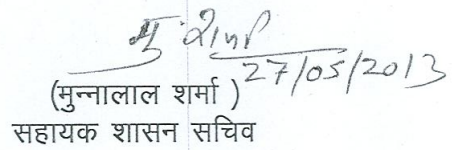 मु. शर्मा
27/05/2013
(मुन्नालाल शर्मा )
सहायक शासन सचिव